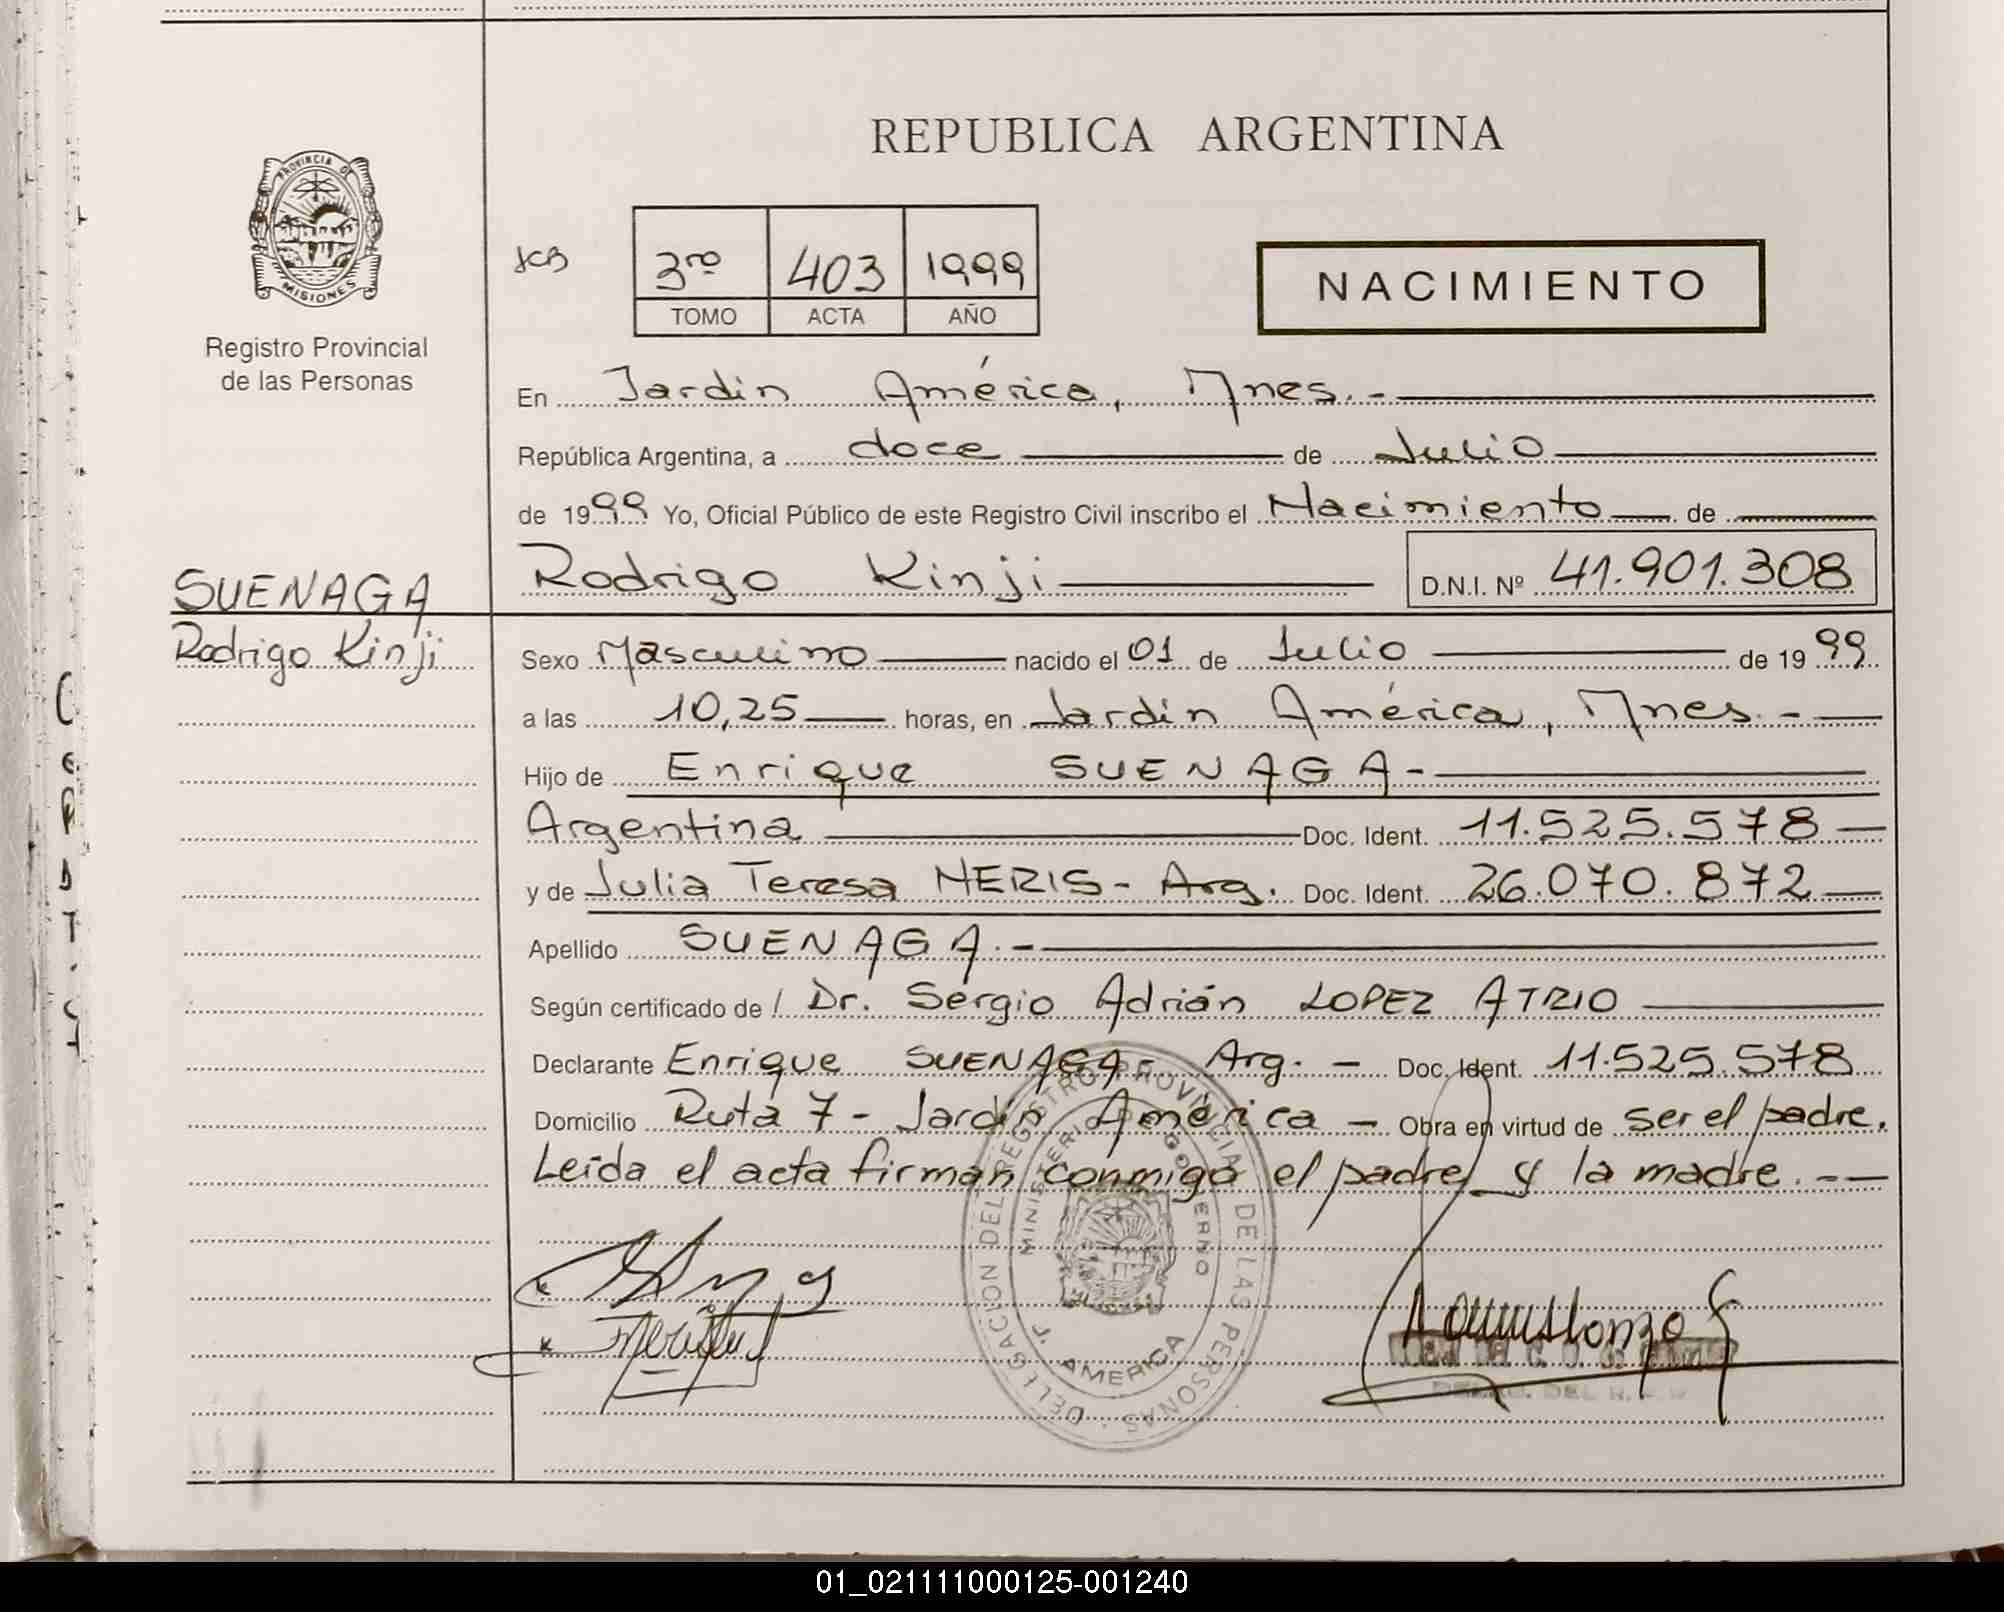 REPUBLICA ARGENTINA
PROVINCIA DE
MISIONES
Registro Provincial
de las Personas
3ro 403 1999
TOMO ACTA AÑO
NACIMIENTO
En Jardin América, Mnes.-
República Argentina, a doce de Julio
de 1999 Yo, Oficial Público de este Registro Civil inscribo el Nacimiento de
SUENAGA
Rodrigo Kinji
Rodrigo Kinji D.N.I. Nº 41.901.308
Sexo Masculino nacido el 01 de Julio de 1999
a las 10,25 horas, en Jardin América, Mnes.-
Hijo de Enrique SUENAGA-
Argentina Doc. Ident. 11.525.578
y de Julia Teresa NERIS- Arg. Doc. Ident. 26.070.872
Apellido SUENAGA.-
Según certificado de / Dr. Sergio Adrián LOPEZ ATRIO
Declarante Enrique SUENAGA- Arg. - Doc. Ident. 11.525.578
Domicilio Ruta 7 - Jardin América - Obra en virtud de ser el padre.
Leída el acta firman conmigo el padre y la madre.--
DELEGACION DEL REGISTRO PROVINCIAL DE LAS PERSONAS
MINISTERIO DE GOBIERNO
J. AMERICA
01_021111000125-001240